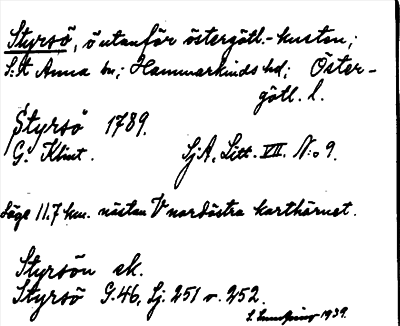 Styrsö, ö utanför östergötl.-kusten;
S:t Anna sn; Hammarkinds hd; Öster-
götl. l.
Styrsö 1789.
G. Klint. SjA, Litt. VII. N:o 9.
Läge 11.7 km. nästan V nordöstra karthörnet.
Styrsön ek.
Styrsö G.46, Sj. 251 o. 252.
1939.